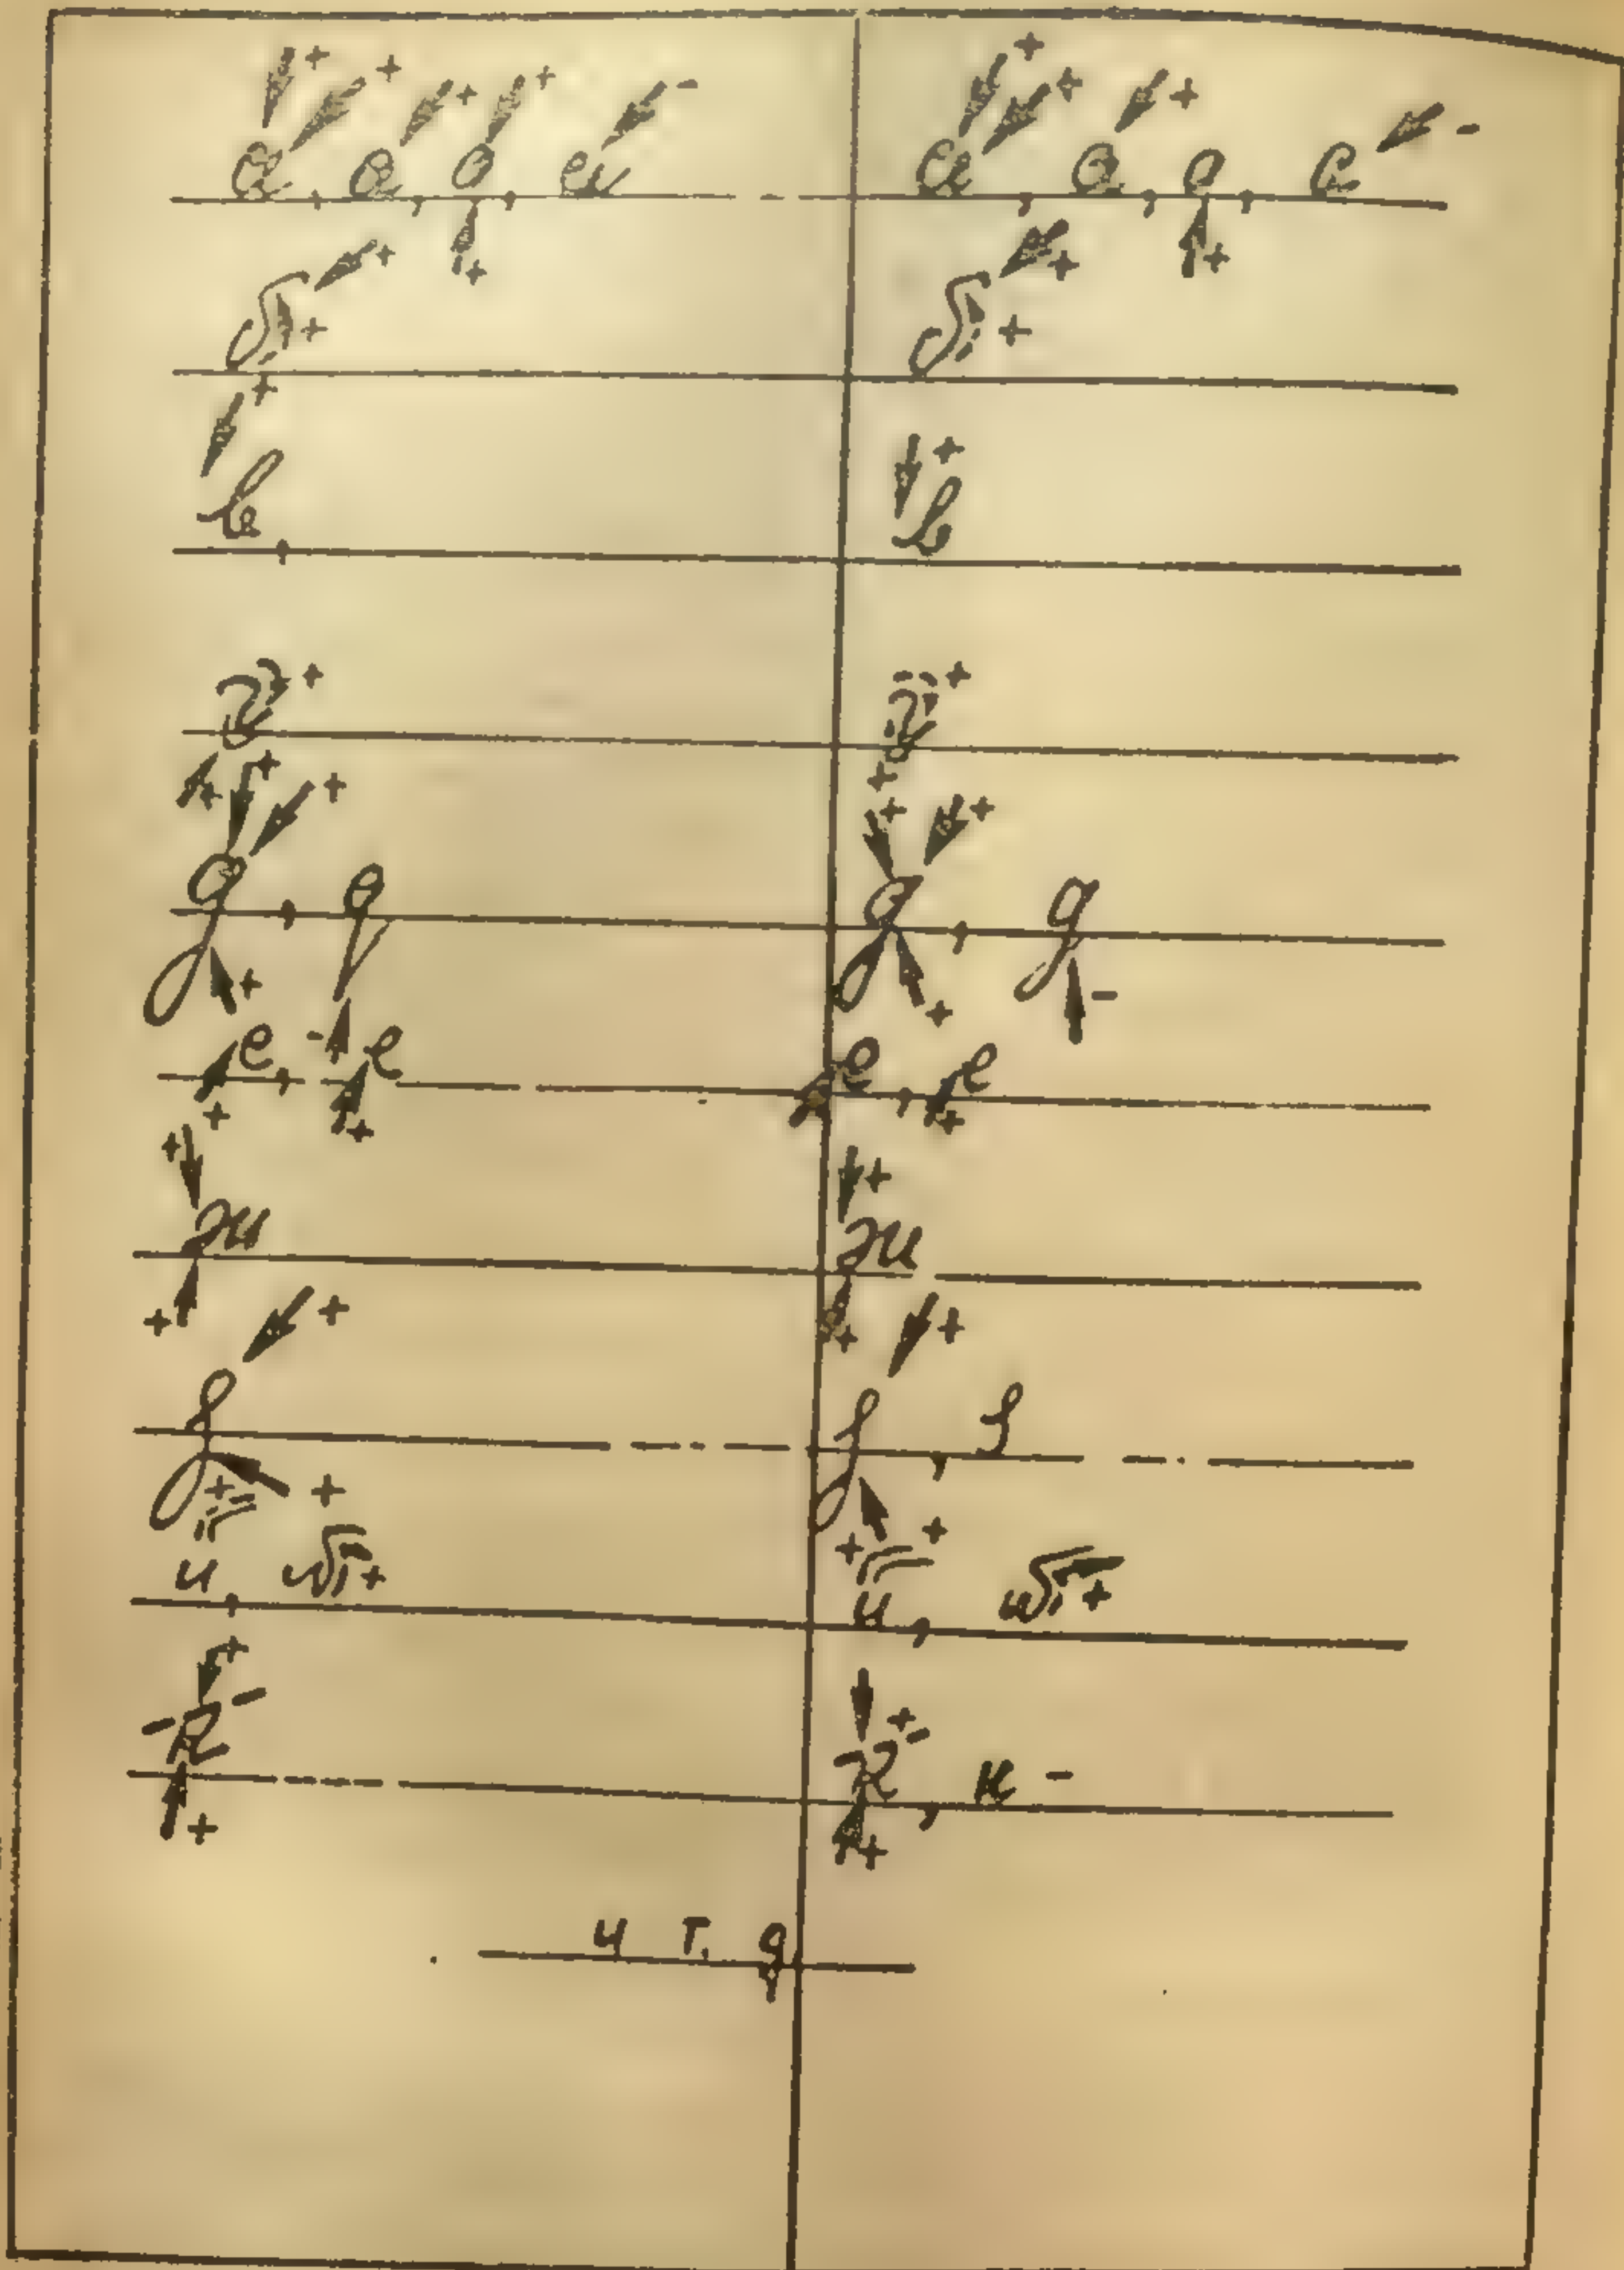 а, а, а, а а, а, а, а
б б
в, в
г г
д, д д, д
е, е е, е
ж ж
з з, з
и, й и, й
к к, к -
и т. д